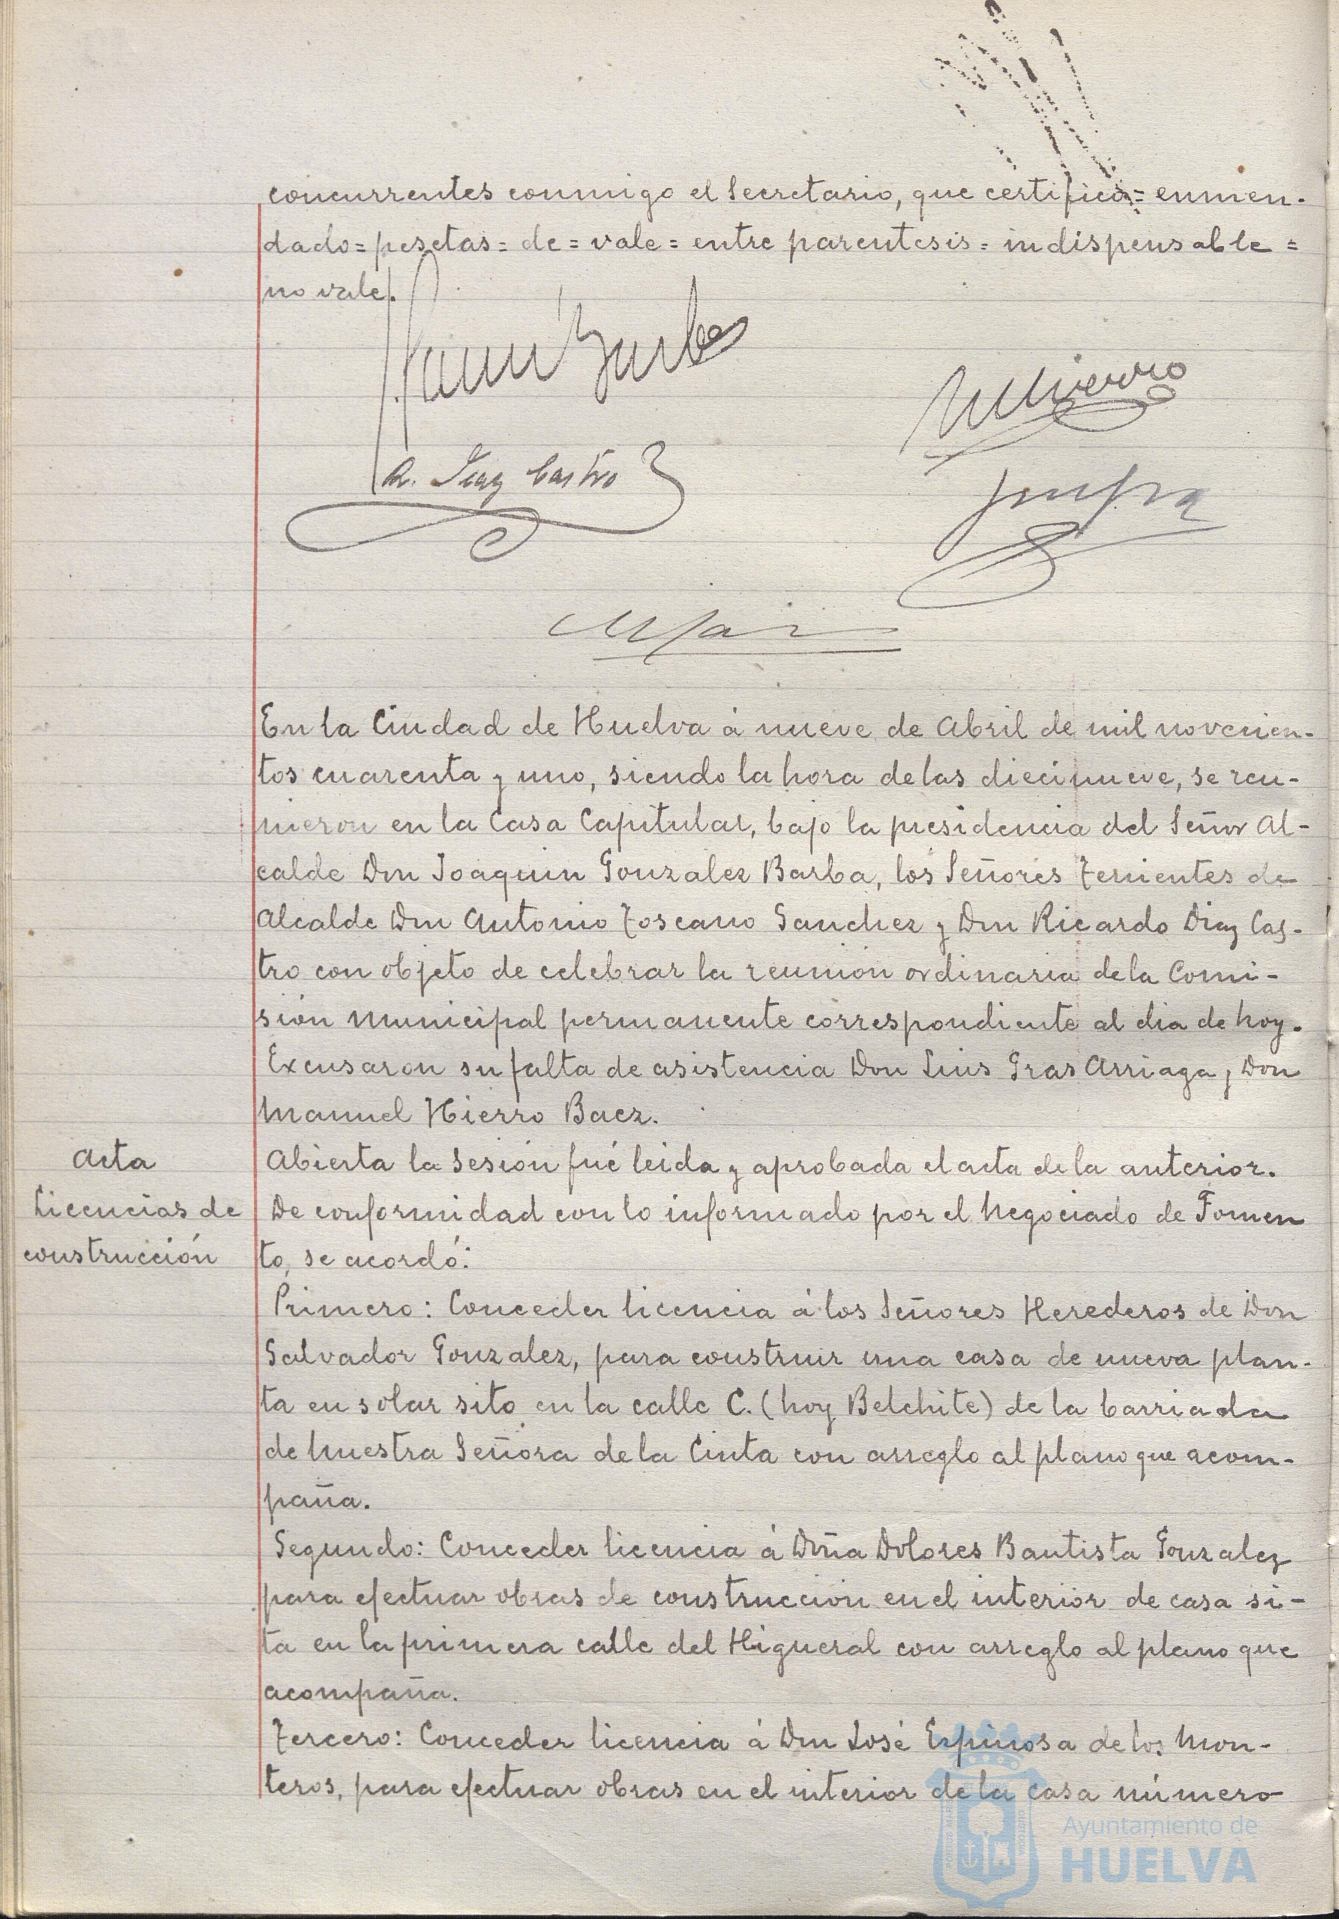 concurrentes conmigo el Secretario, que certifico = enmen-
dado = pesetas = de = vale = entre parentesis = indispensable =
no vale.
R. Diaz Castro
En la Ciudad de Huelva á nueve de Abril de mil novecien-
tos cuarenta y uno, siendo la hora de las diecinueve, se reu-
nieron en la Casa Capitular, bajo la presidencia del Señor Al-
calde Don Joaquin Gonzalez Barba, los Señores Tenientes de
Alcalde Don Antonio Toscano Sanchez y Don Ricardo Diaz Cas-
tro con objeto de celebrar la reunión ordinaria de la Comi-
sión municipal permanente correspondiente al dia de hoy.
Excusaron su falta de asistencia Don Luis Gras Arriaga y Don
Manuel Hierro Baez.
Acta
Abierta la sesión fué leida y aprobada el acta de la anterior.
Licencias de
construcción
De conformidad con lo informado por el Negociado de Fomen
to, se acordó:
Primero: Conceder licencia á los Señores Herederos de Don
Salvador Gonzalez, para construir una casa de nueva plan-
ta en solar sito en la calle C. (hoy Belchite) de la barriada
de Nuestra Señora de la Cinta con arreglo al plano que acom-
paña.
Segundo: Conceder licencia á Doña Dolores Bautista Gonzalez
para efectuar obras de construcción en el interior de casa si-
ta en la primera calle del Higueral con arreglo al plano que
acompaña.
Tercero: Conceder licencia á Don José Espinosa de los Mon-
teros, para efectuar obras en el interior de la casa número
Ayuntamiento de
HUELVA